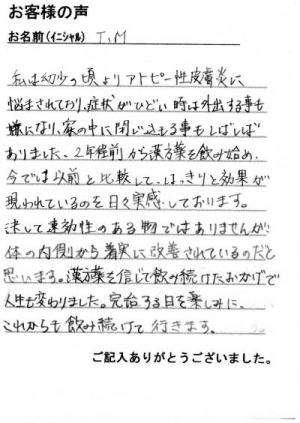 お客様の声
お名前(イニシャル) T.M
私は幼少の頃よりアトピー性皮膚炎に
悩まされており、症状がひどい時は外出する事も
嫌になり、家の中に閉じ込もる事もしばしば
ありました。2年程前から漢方薬を飲み始め、
今では以前と比較して、はっきりと効果が
現われているのを日々実感しております。
決して速効性のある物ではありませんが、
体の内側から着実に改善されているのだと
思います。漢方薬を信じて飲み続けたおかげで
人生も変わりました。完治する日を楽しみに、
これからも飲み続けて行きます。
ご記入ありがとうございました。